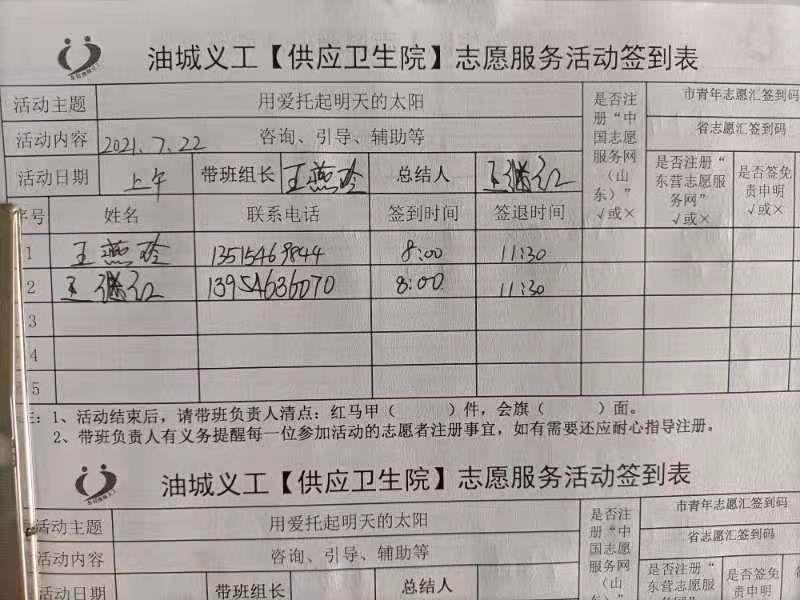 油城义工【供应卫生院】志愿服务活动签到表
活动主题 用爱托起明天的太阳 是否注册“中国志愿服务网（山东）”√或× 市青年志愿汇签到码
活动内容 2021.7.22 咨询、引导、辅助等 省志愿汇签到码
活动日期 上午 带班组长 王燕玲 总结人 王继红 是否注册“东营志愿服务网”√或× 是否签免责申明√或×
序号 姓名 联系电话 签到时间 签退时间
1 王燕玲 13515469844 8:00 11:30
2 王继红 13954636070 8:00 11:30
3
4
5
注：1、活动结束后，请带班负责人清点：红马甲（ ）件，会旗（ ）面。
2、带班负责人有义务提醒每一位参加活动的志愿者注册事宜，如有需要还应耐心指导注册。
油城义工【供应卫生院】志愿服务活动签到表
活动主题 用爱托起明天的太阳 是否注册“中国志愿服务网（山东）” 市青年志愿汇签到码
活动内容 咨询、引导、辅助等 省志愿汇签到码
活动日期 带班组长 总结人 是否注册“东营志愿服 是否签免责申明